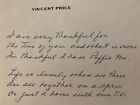 VINCENT PRICE
I am very thankful for
the Two of you and what is more
I'm thankful I have Puffie too.
Life is lovely when we three
are all together on a spree
Or just at home with our T.V.